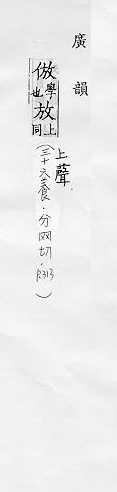 廣韻
倣學也放上同
上聲
(三十六養．分网切．P.313)